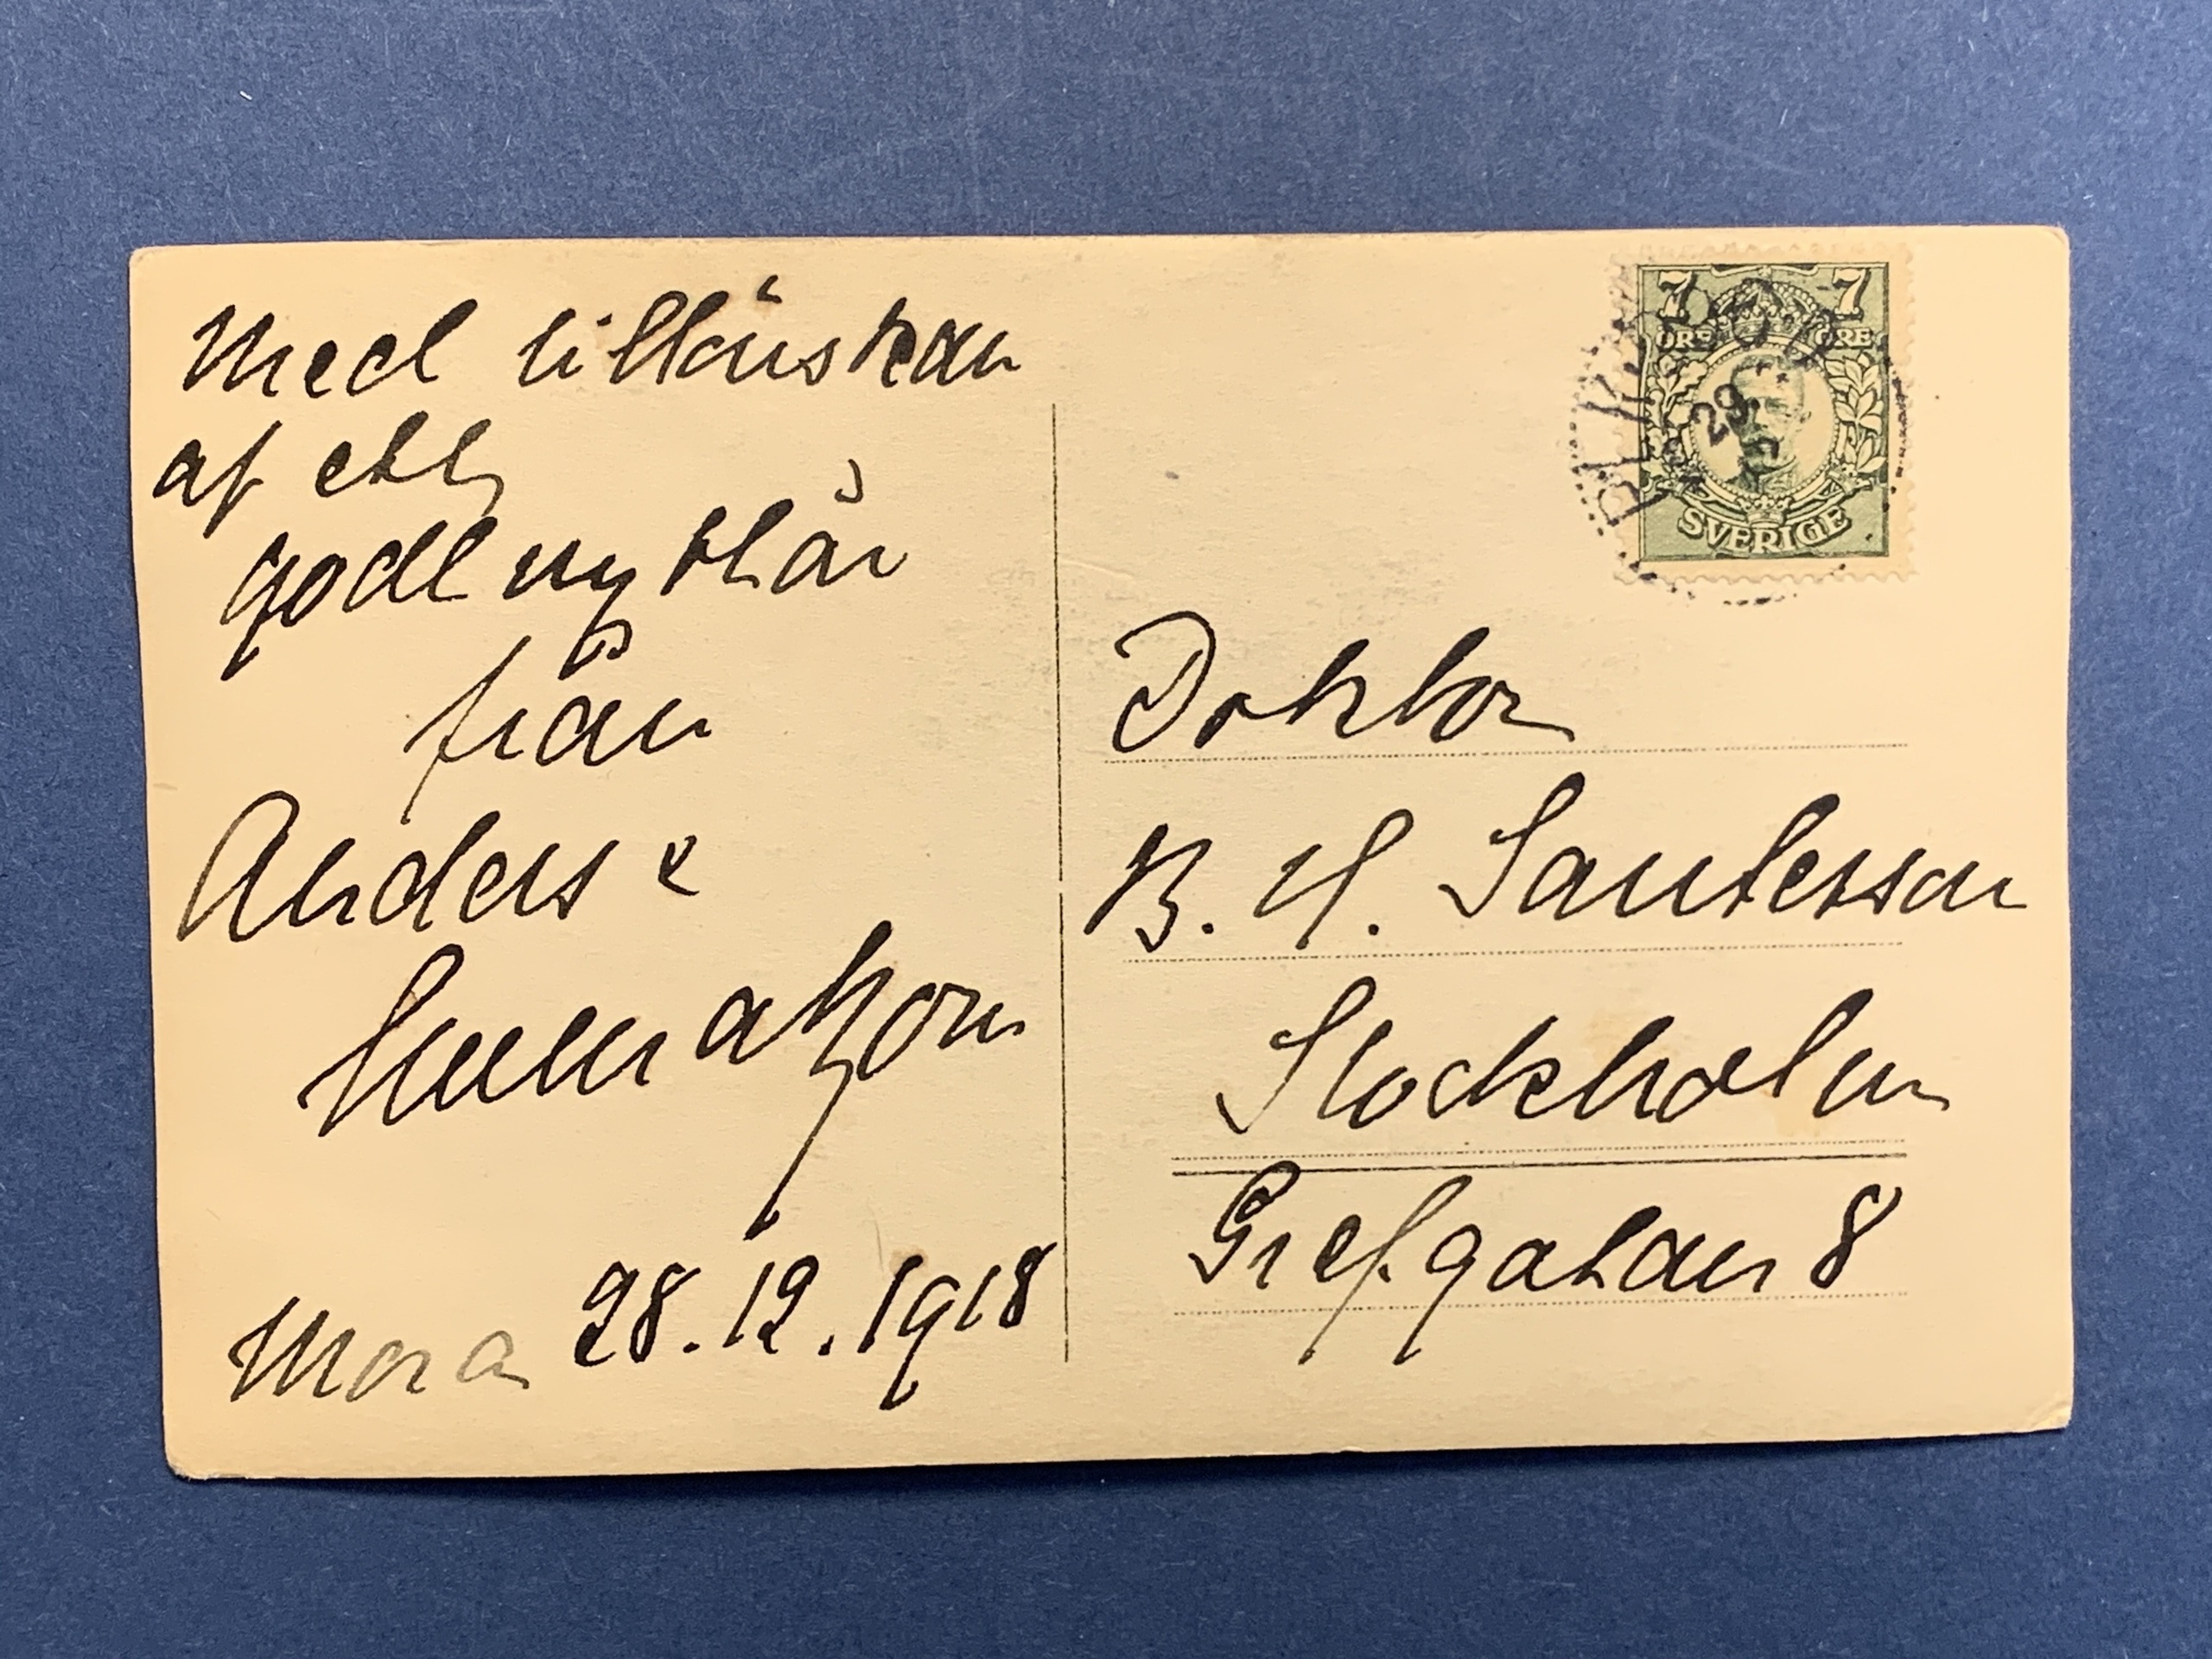 Med tillönskan
af ett
godt nytt år
från
Anders &
Emma Zorn
Mora 28.12.1918
7 7
ÖRE ÖRE
29
SVERIGE
Doktor
B. H. Santesson
Stockholm
Grefgatan 8